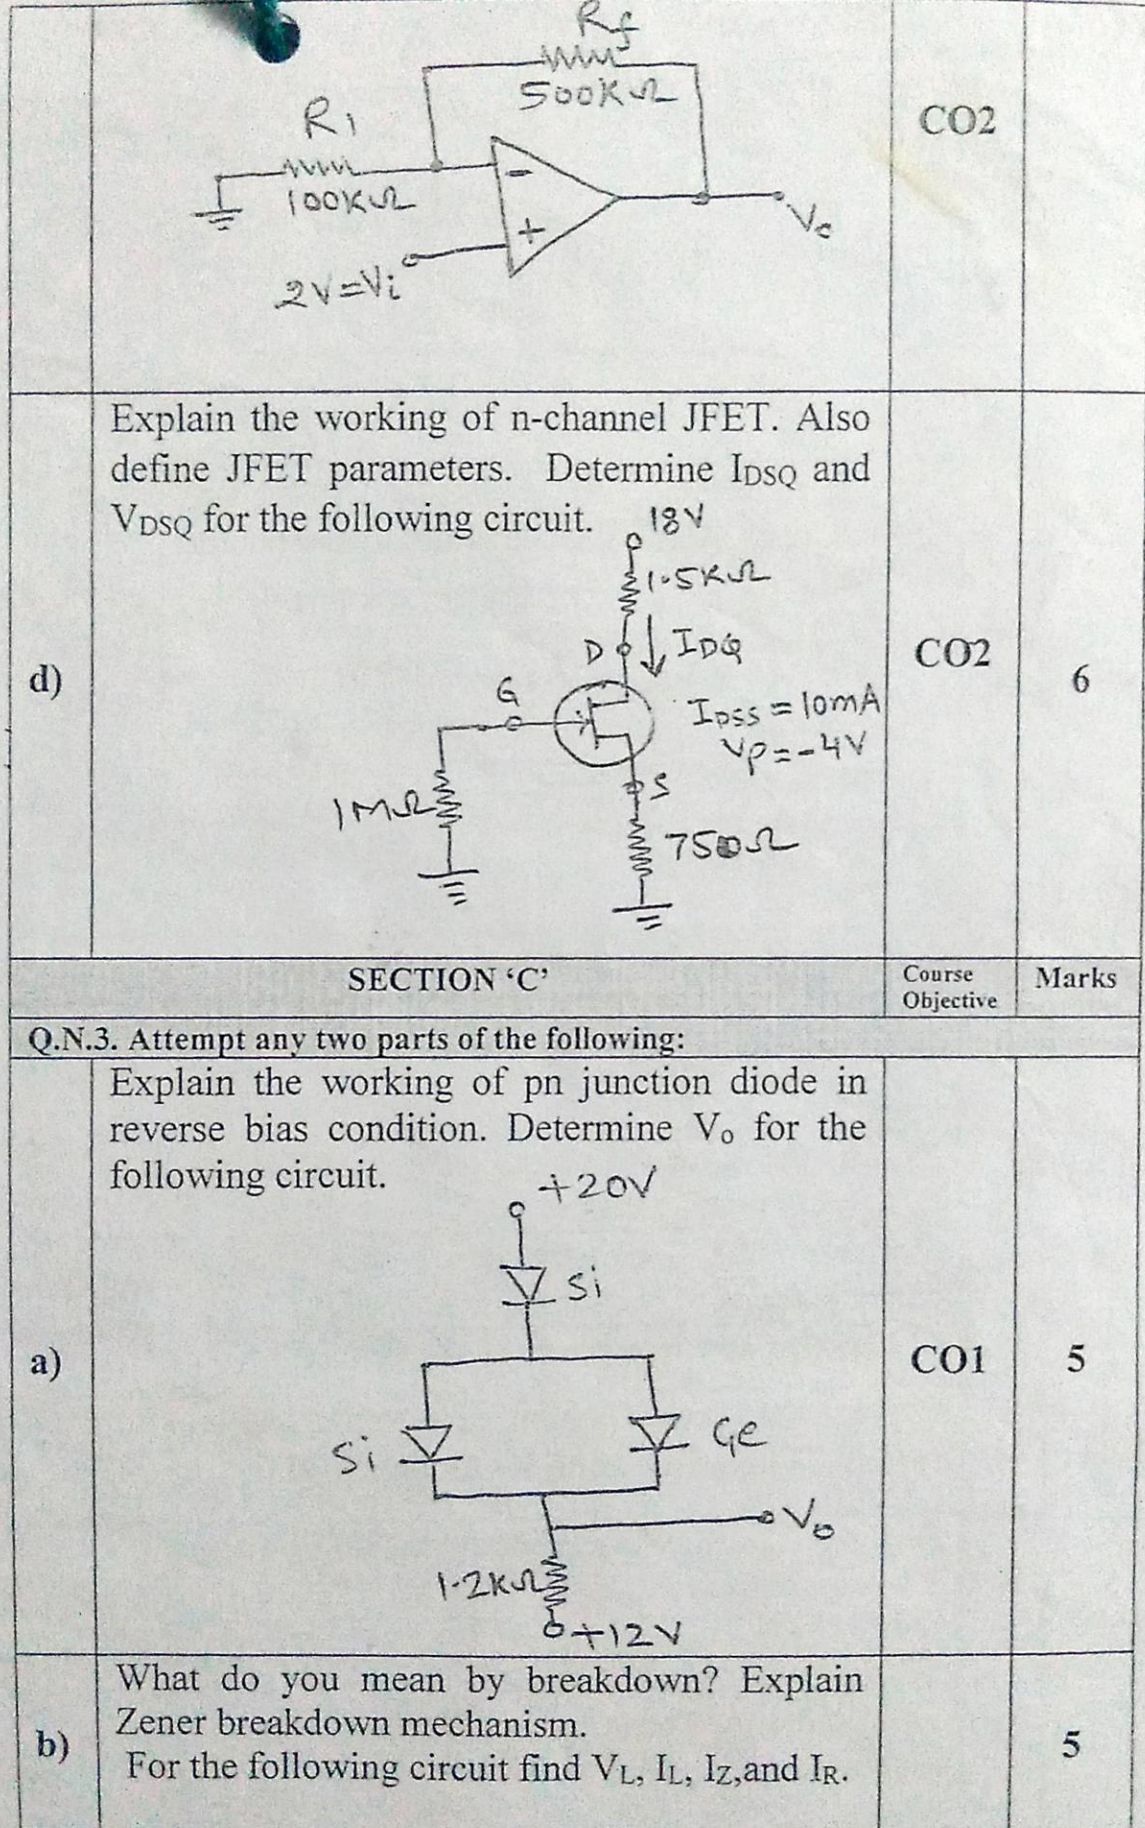 Rf
500KΩ
R1
100KΩ
CO2
2V=Vi
Vo
Explain the working of n-channel JFET. Also
define JFET parameters. Determine IDSQ and
VDSQ for the following circuit.
18V
1.5KΩ
D
IDQ
d)
CO2
6
G
IDSS = 10mA
Vp=-4V
S
1MΩ
750Ω
SECTION ‘C’
Course Objective
Marks
Q.N.3. Attempt any two parts of the following:
Explain the working of pn junction diode in
reverse bias condition. Determine Vo for the
following circuit.
+20V
Si
a)
CO1
5
Si
Ge
Vo
1.2KΩ
+12V
What do you mean by breakdown? Explain
Zener breakdown mechanism.
b)
5
For the following circuit find VL, IL, IZ,and IR.